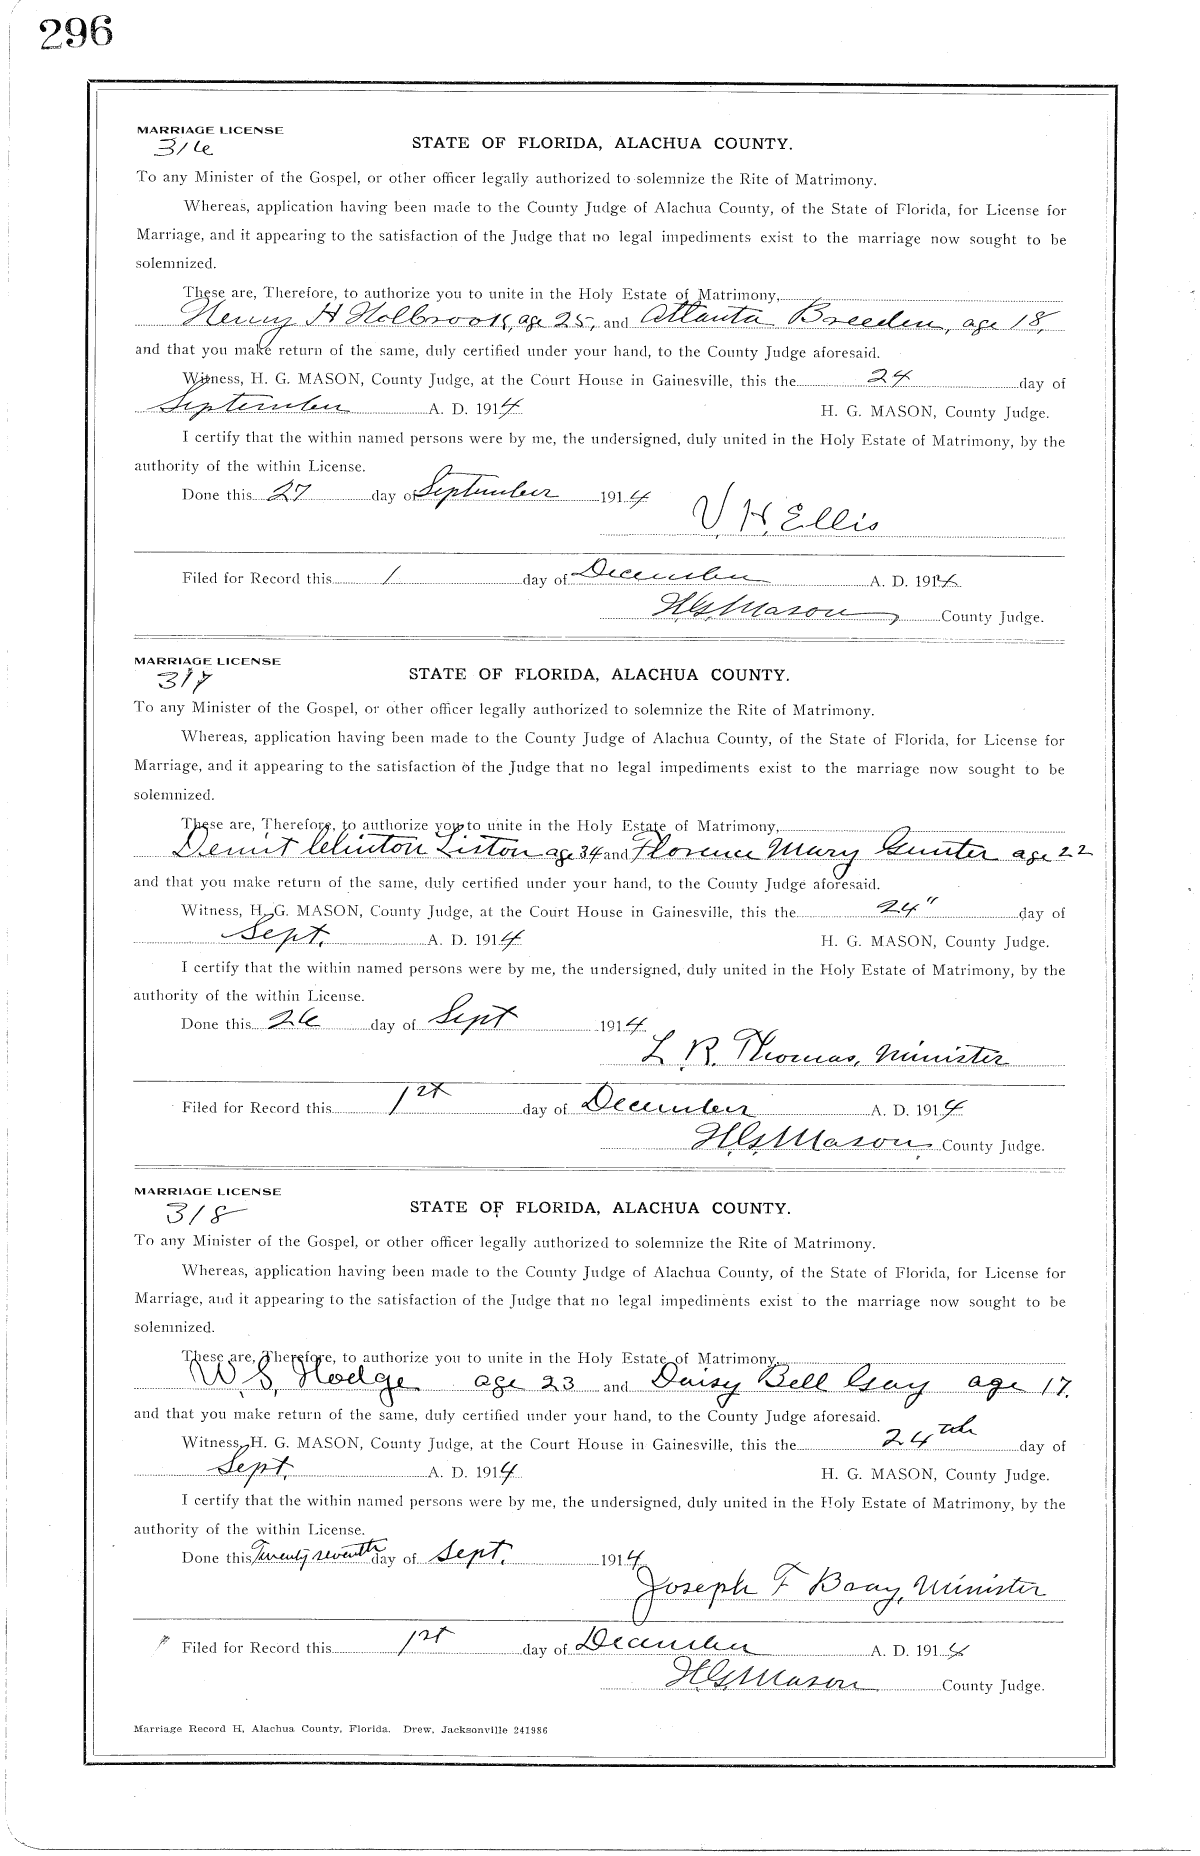 296
MARRIAGE LICENSE
316
STATE OF FLORIDA, ALACHUA COUNTY.
To any Minister of the Gospel, or other officer legally authorized to solemnize the Rite of Matrimony.
Whereas, application having been made to the County Judge of Alachua County, of the State of Florida, for License for
Marriage, and it appearing to the satisfaction of the Judge that no legal impediments exist to the marriage now sought to be
solemnized.
These are, Therefore, to authorize you to unite in the Holy Estate of Matrimony,
Henry H Holbrook, age 25, and Atlanta Breeden, age 18,
and that you make return of the same, duly certified under your hand, to the County Judge aforesaid.
Witness, H. G. MASON, County Judge, at the Court House in Gainesville, this the 24 day of
September A. D. 1914 H. G. MASON, County Judge.
I certify that the within named persons were by me, the undersigned, duly united in the Holy Estate of Matrimony, by the
authority of the within License.
Done this 27 day of September 1914
V. H. Ellis
Filed for Record this 1 day of December A. D. 1914
H. G. Mason, County Judge.
MARRIAGE LICENSE
317
STATE OF FLORIDA, ALACHUA COUNTY.
To any Minister of the Gospel, or other officer legally authorized to solemnize the Rite of Matrimony.
Whereas, application having been made to the County Judge of Alachua County, of the State of Florida, for License for
Marriage, and it appearing to the satisfaction of the Judge that no legal impediments exist to the marriage now sought to be
solemnized.
These are, Therefore, to authorize you to unite in the Holy Estate of Matrimony,
Clinton Liston age 34 and Florence Mary Gunter age 22
and that you make return of the same, duly certified under your hand, to the County Judge aforesaid.
Witness, H. G. MASON, County Judge, at the Court House in Gainesville, this the 24" day of
Sept. A. D. 1914 H. G. MASON, County Judge.
I certify that the within named persons were by me, the undersigned, duly united in the Holy Estate of Matrimony, by the
authority of the within License.
Done this 26 day of Sept 1914
L. R. Thomas, Minister
Filed for Record this 1st day of December A. D. 1914
H. G. Mason, County Judge.
MARRIAGE LICENSE
318
STATE OF FLORIDA, ALACHUA COUNTY.
To any Minister of the Gospel, or other officer legally authorized to solemnize the Rite of Matrimony.
Whereas, application having been made to the County Judge of Alachua County, of the State of Florida, for License for
Marriage, and it appearing to the satisfaction of the Judge that no legal impediments exist to the marriage now sought to be
solemnized.
These are, Therefore, to authorize you to unite in the Holy Estate of Matrimony,
W. S. Hodge age 23 and Daisy Bell Gay age 17.
and that you make return of the same, duly certified under your hand, to the County Judge aforesaid.
Witness, H. G. MASON, County Judge, at the Court House in Gainesville, this the 24th day of
Sept. A. D. 1914 H. G. MASON, County Judge.
I certify that the within named persons were by me, the undersigned, duly united in the Holy Estate of Matrimony, by the
authority of the within License.
Done this Twenty seventh day of Sept. 1914
Joseph F Bray, Minister
Filed for Record this 1st day of December A. D. 1914
H. G. Mason County Judge.
Marriage Record H, Alachua County, Florida. Drew, Jacksonville 241986